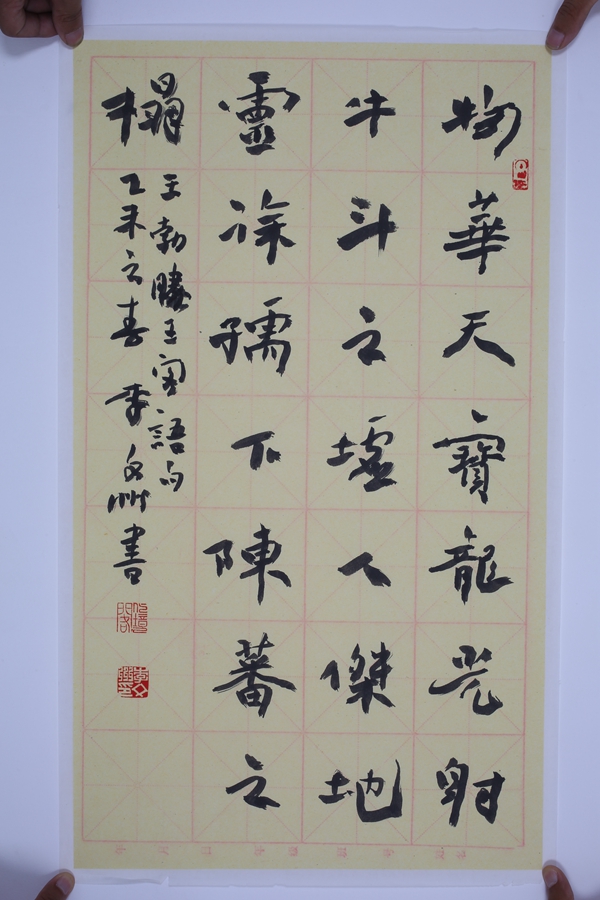 物華天寶龍光射
牛斗之墟人傑地
靈徐孺下陳蕃之
榻
王勃滕王閣語句
乙未之春 李文書